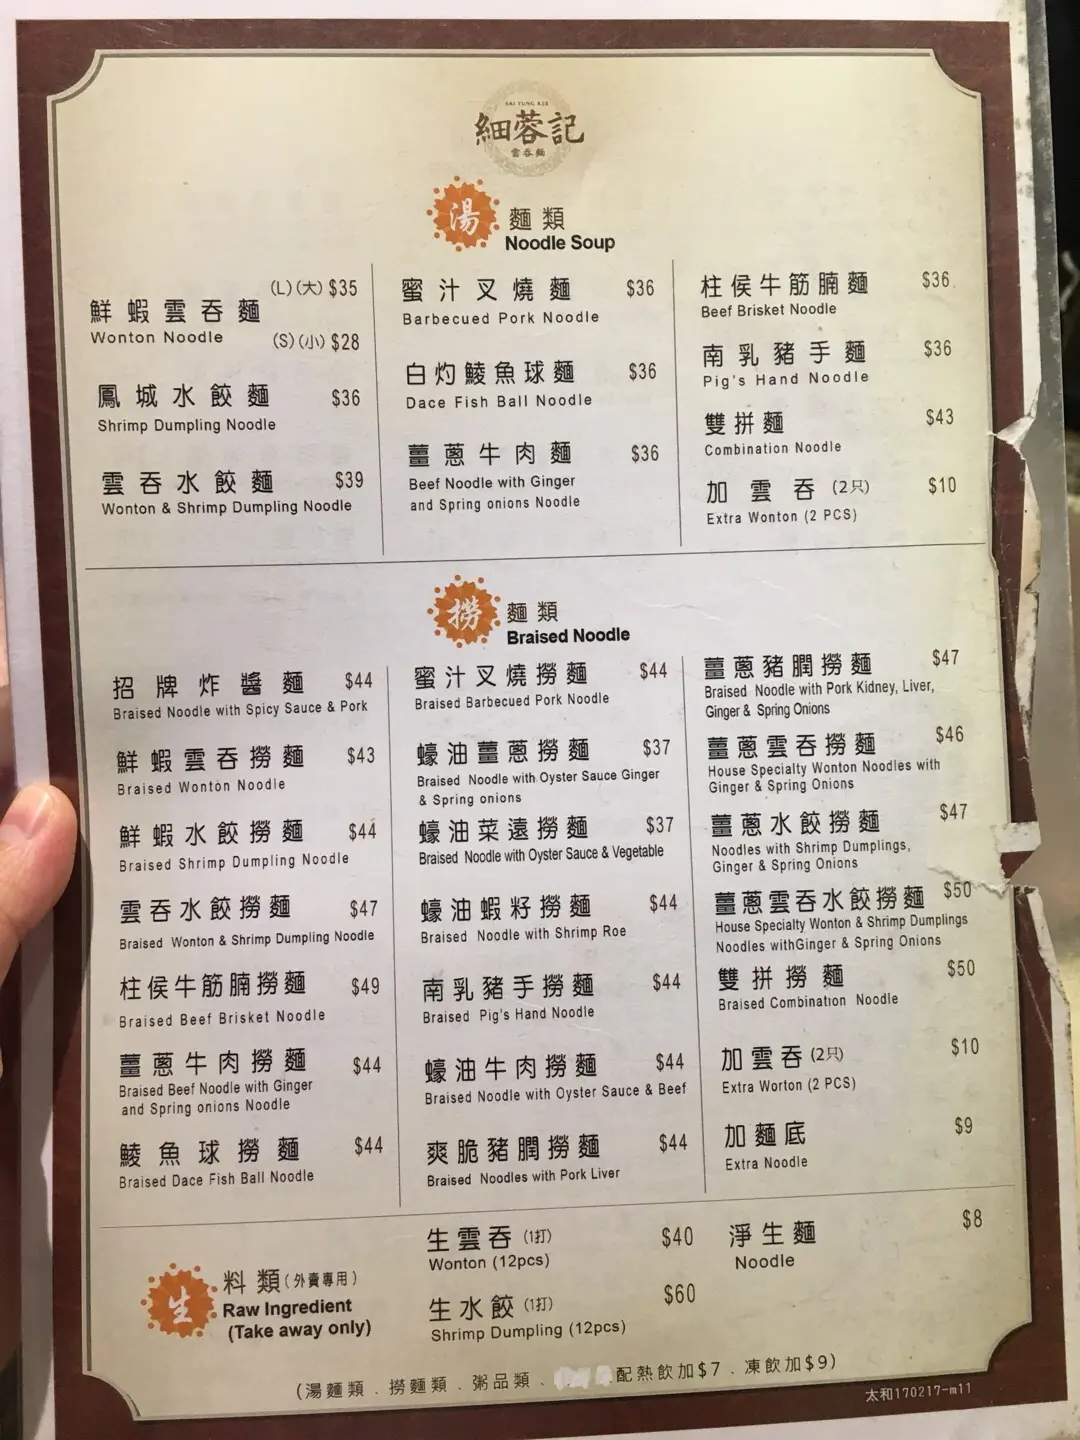 SAI YUNG KEE
細蓉記
雲吞麵
湯 麵類
Noodle Soup
鮮蝦雲吞麵 (L)(大) $35
Wonton Noodle (S)(小) $28
鳳城水餃麵 $36
Shrimp Dumpling Noodle
雲吞水餃麵 $39
Wonton & Shrimp Dumpling Noodle
蜜汁叉燒麵 $36
Barbecued Pork Noodle
白灼鯪魚球麵 $36
Dace Fish Ball Noodle
薑蔥牛肉麵 $36
Beef Noodle with Ginger
and Spring onions Noodle
柱侯牛筋腩麵 $36
Beef Brisket Noodle
南乳豬手麵 $36
Pig's Hand Noodle
雙拼麵 $43
Combination Noodle
加雲吞 (2只) $10
Extra Wonton (2 PCS)
撈 麵類
Braised Noodle
招牌炸醬麵 $44
Braised Noodle with Spicy Sauce & Pork
鮮蝦雲吞撈麵 $43
Braised Wonton Noodle
鮮蝦水餃撈麵 $44
Braised Shrimp Dumpling Noodle
雲吞水餃撈麵 $47
Braised Wonton & Shrimp Dumpling Noodle
柱侯牛筋腩撈麵 $49
Braised Beef Brisket Noodle
薑蔥牛肉撈麵 $44
Braised Beef Noodle with Ginger
and Spring onions Noodle
鯪魚球撈麵 $44
Braised Dace Fish Ball Noodle
蜜汁叉燒撈麵 $44
Braised Barbecued Pork Noodle
蠔油薑蔥撈麵 $37
Braised Noodle with Oyster Sauce Ginger
& Spring onions
蠔油菜遠撈麵 $37
Braised Noodle with Oyster Sauce & Vegetable
蠔油蝦籽撈麵 $44
Braised Noodle with Shrimp Roe
南乳豬手撈麵 $44
Braised Pig's Hand Noodle
蠔油牛肉撈麵 $44
Braised Noodle with Oyster Sauce & Beef
爽脆豬膶撈麵 $44
Braised Noodles with Pork Liver
薑蔥豬膶撈麵 $47
Braised Noodle with Pork Kidney, Liver,
Ginger & Spring Onions
薑蔥雲吞撈麵 $46
House Specialty Wonton Noodles with
Ginger & Spring Onions
薑蔥水餃撈麵 $47
Noodles with Shrimp Dumplings,
Ginger & Spring Onions
薑蔥雲吞水餃撈麵 $50
House Specialty Wonton & Shrimp Dumplings
Noodles withGinger & Spring Onions
雙拼撈麵 $50
Braised Combination Noodle
加雲吞 (2只) $10
Extra Worton (2 PCS)
加麵底 $9
Extra Noodle
生 料類 (外賣專用)
Raw Ingredient
(Take away only)
生雲吞 (1打) $40
Wonton (12pcs)
生水餃 (1打) $60
Shrimp Dumpling (12pcs)
淨生麵 $8
Noodle
(湯麵類、撈麵類、粥品類、配熱飲加$7、凍飲加$9)
太和170217-m11